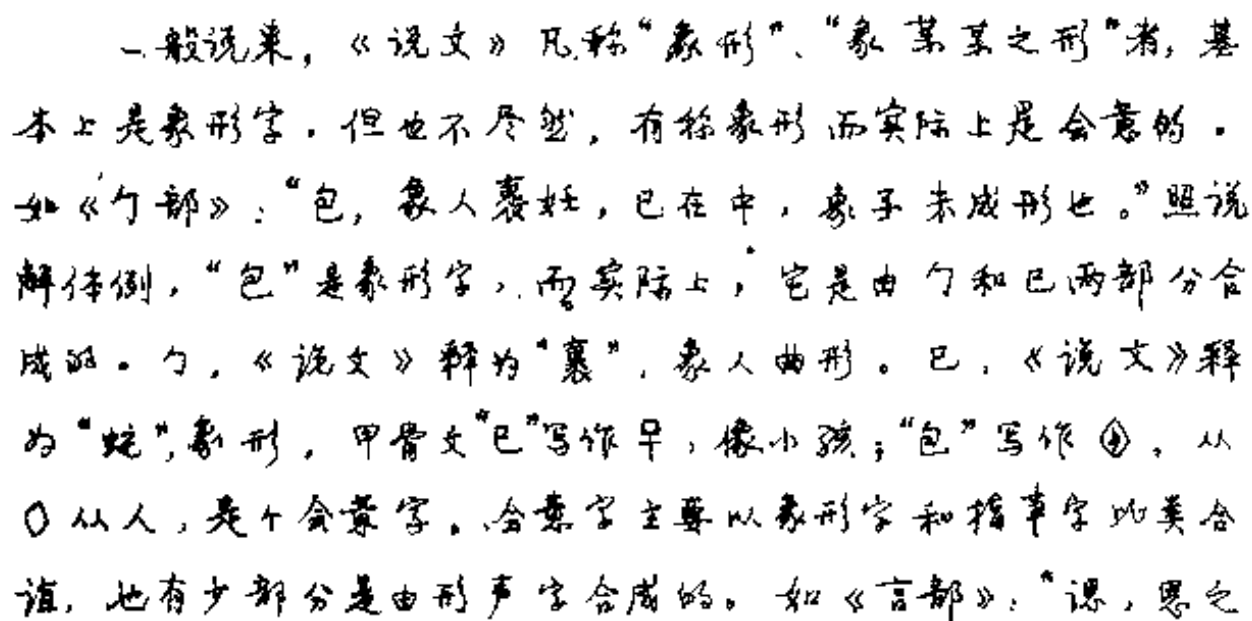 一般说来，《说文》凡称“象形”、“象某某之形”者，基
本上是象形字。但也不尽然，有称象形而实际上是会意的。
如《勹部》：“包，象人裹妊，巳在中，象子未成形也。”照说
解体例，“包”是象形字，而实际上，它是由勹和巳两部分合
成的。勹，《说文》释为“裹”，象人曲形。巳，《说文》释
为“蛇”，象形，甲骨文“巳”写作，像小孩；“包”写作，从
从人，是个会意字。会意字主要以象形字和指事字比类合
谊，也有少部分是由形声字合成的。如《言部》：“諰，思之